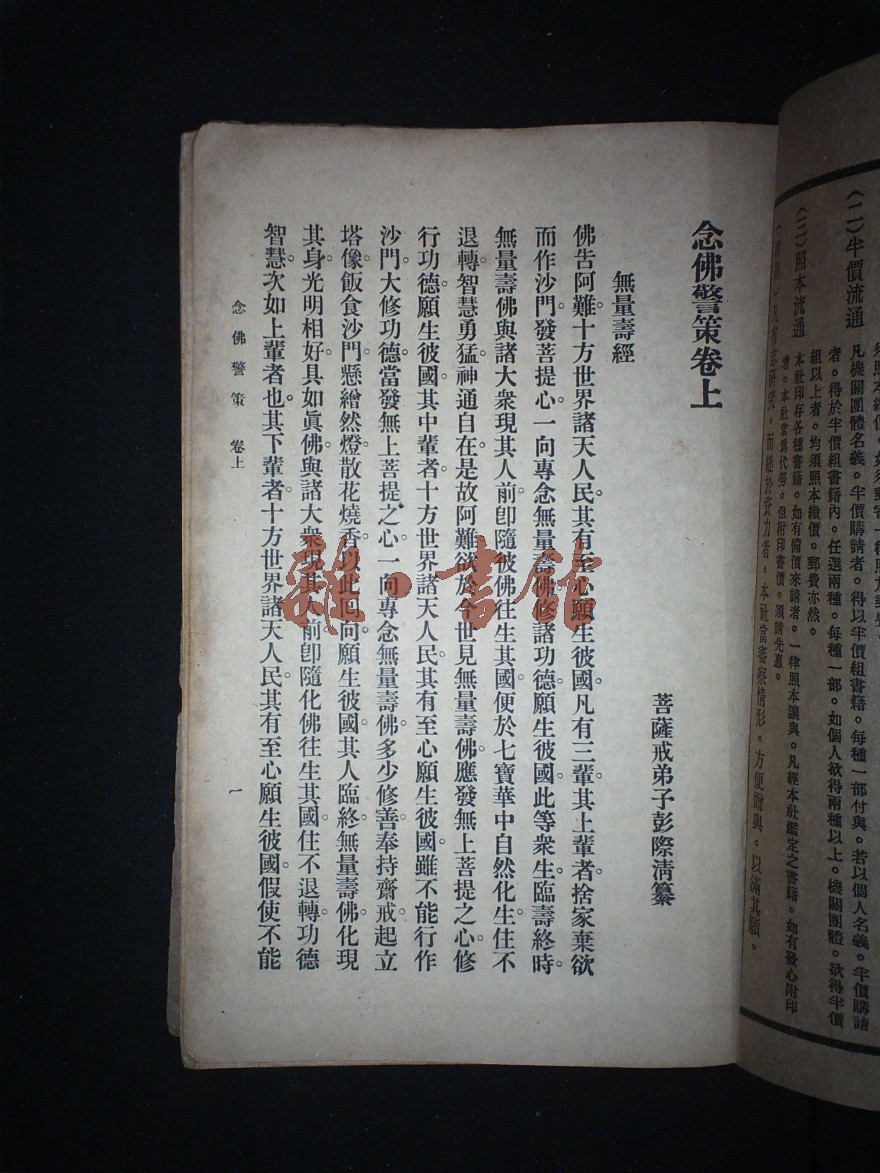 (二)半價流通
凡機關團體名義。半價購請者。得以半價組書籍。每種一部付與。若以個人名義。半價購請
者。得於半價組書籍內。任選兩種。每種一部。如個人欲得兩種以上。機關團體。欲得半價
組以上者。均須照本繳價。郵費亦然。
(三)照本流通
本社印存各種書籍。如有備價來請者。一律照本讓與。凡經本社鑑定之書籍。如有發心附印
者。本社當爲代勞。但附印書價。須請先惠。
而絀於資力者。本社當審察情形。方便贈與。以滿其願。
念佛警策卷上
菩薩戒弟子彭際淸纂
無量壽經
佛告阿難。十方世界諸天人民。其有至心願生彼國。凡有三輩。其上輩者。捨家棄欲
而作沙門。發菩提心。一向專念無量壽佛。修諸功德。願生彼國。此等衆生。臨壽終時。
無量壽佛。與諸大衆。現其人前。卽隨彼佛往生其國。便於七寶華中自然化生。住不
退轉。智慧勇猛。神通自在。是故阿難。欲於今世見無量壽佛。應發無上菩提之心。修
行功德。願生彼國。其中輩者。十方世界諸天人民。其有至心願生彼國。雖不能行作
沙門。大修功德。當發無上菩提之心。一向專念無量壽佛。多少修善。奉持齋戒。起立
塔像。飯食沙門。懸繒然燈。散花燒香。以此回向。願生彼國。其人臨終。無量壽佛。化現
其身。光明相好。具如眞佛。與諸大衆。現其人前。卽隨化佛往生其國。住不退轉。功德
智慧。次如上輩者也。其下輩者。十方世界諸天人民。其有至心願生彼國。假使不能
念佛警策 卷上
一